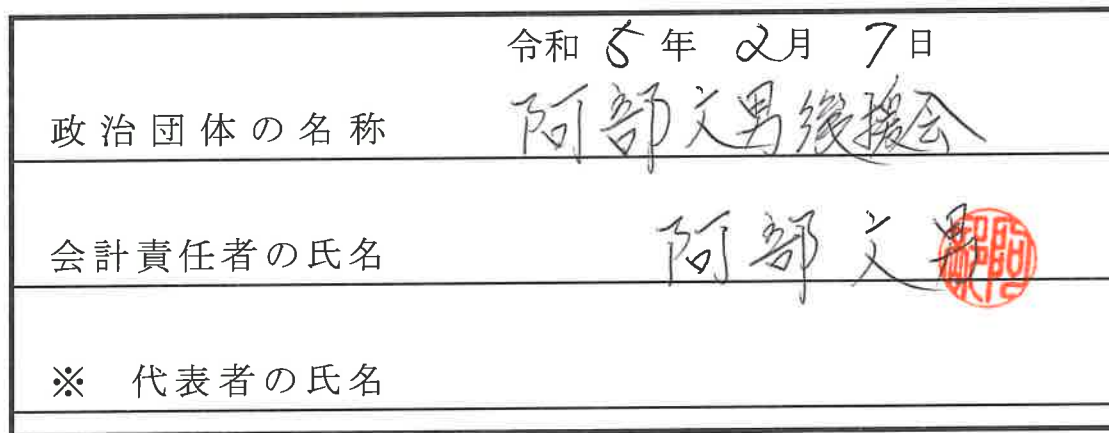 令和 5 年 2月 7日
政治団体の名称 阿部文男後援会
会計責任者の氏名 阿部文男 阿部
※ 代表者の氏名